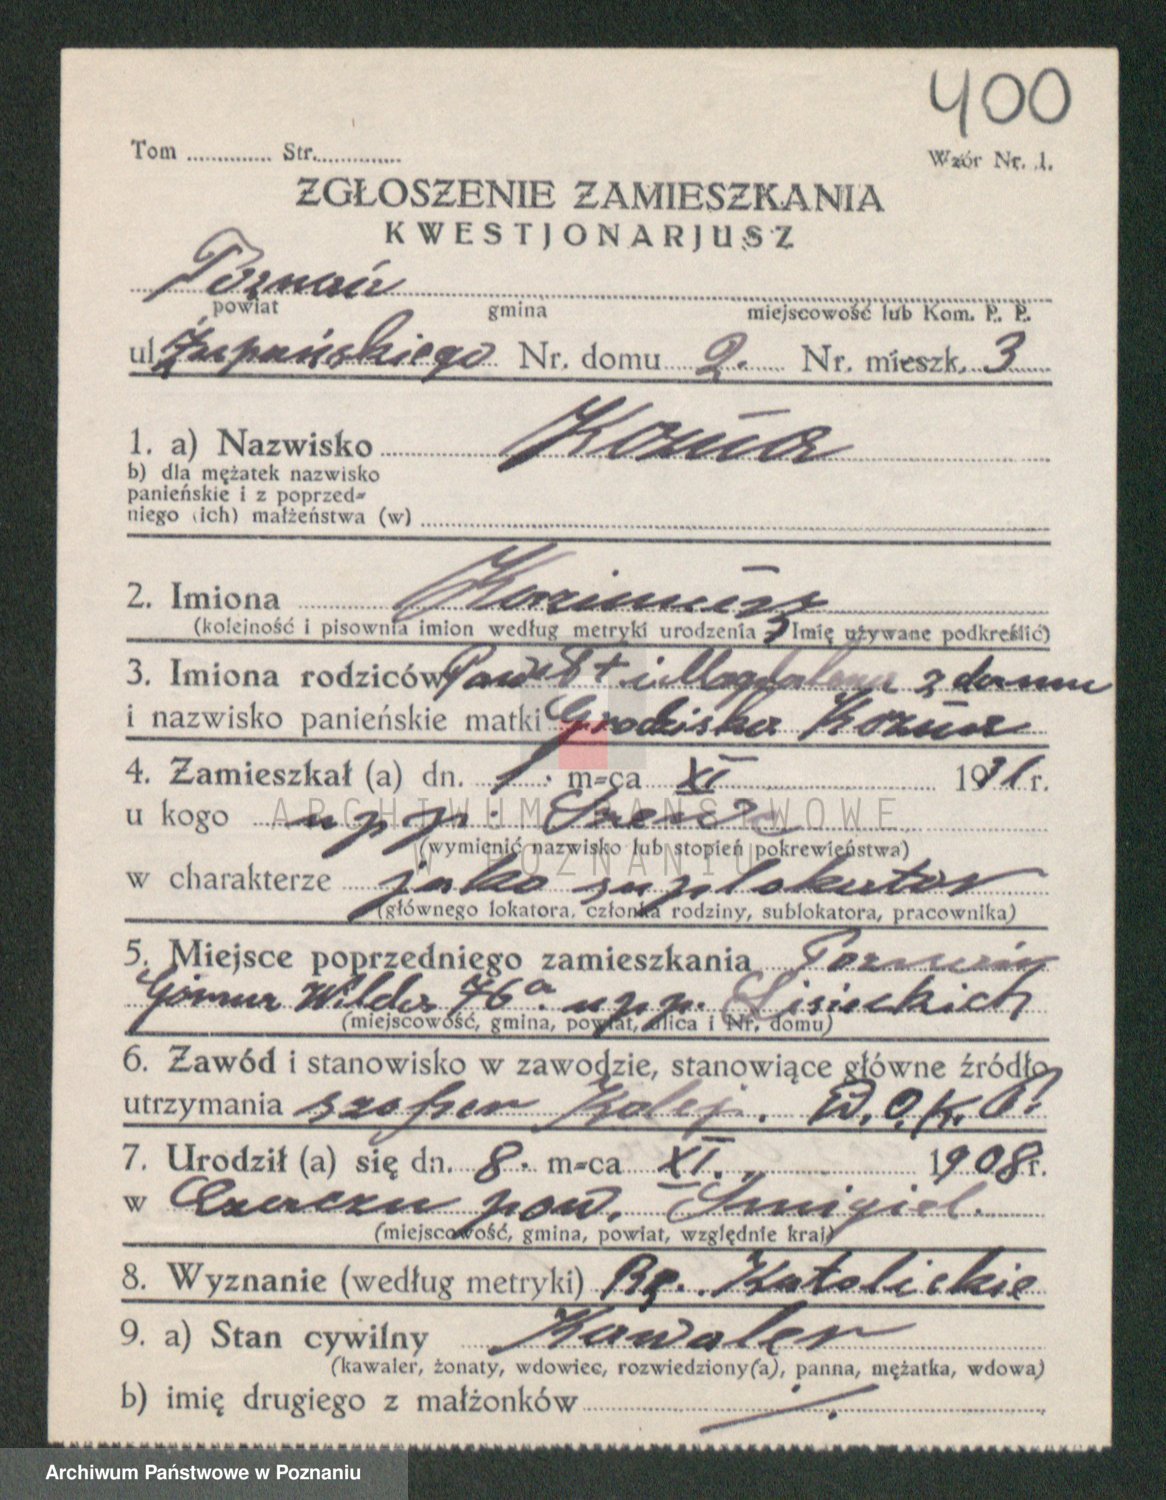 400
Tom ............. Str..............
Wzór Nr. 1.
ZGŁOSZENIE ZAMIESZKANIA
KWESTJONARJUSZ
Poznań
powiat gmina miejscowość lub Kom. P. P.
ul. Żupańskiego Nr. domu 2. Nr. mieszk. 3
1. a) Nazwisko Kozua
b) dla mężatek nazwisko
panieńskie i z poprzed-
niego (ich) małżeństwa (w)
2. Imiona Kazimierz
(kolejność i pisownia imion według metryki urodzenia Imię używane podkreślić)
3. Imiona rodziców Paweł + i Magdalena z domu
i nazwisko panieńskie matki Grodziska Kozua
4. Zamieszkał (a) dn. 1. m-ca XI 1931 r.
u kogo u p.p.
(wymienić nazwisko lub stopień pokrewieństwa)
w charakterze jako suplokator
(głównego lokatora, członka rodziny, sublokatora, pracownika)
ARCHIWUM PAŃSTWOWE
W POZNANIU
5. Miejsce poprzedniego zamieszkania Poznań
Górna Wilda 76a. u p.p. Lisieckich
(miejscowość, gmina, powiat, ulica i Nr. domu)
6. Zawód i stanowisko w zawodzie, stanowiące główne źródło
utrzymania szofer Kolej. W.O.K.P.
7. Urodził (a) się dn. 8. m-ca XI. 1908 r.
w pow. Śmigiel.
(miejscowość, gmina, powiat, względnie kraj)
8. Wyznanie (według metryki) Rz. Katolickie
9. a) Stan cywilny Kawaler
(kawaler, żonaty, wdowiec, rozwiedziony(a), panna, mężatka, wdowa)
b) imię drugiego z małżonków ./.
Archiwum Państwowe w Poznaniu